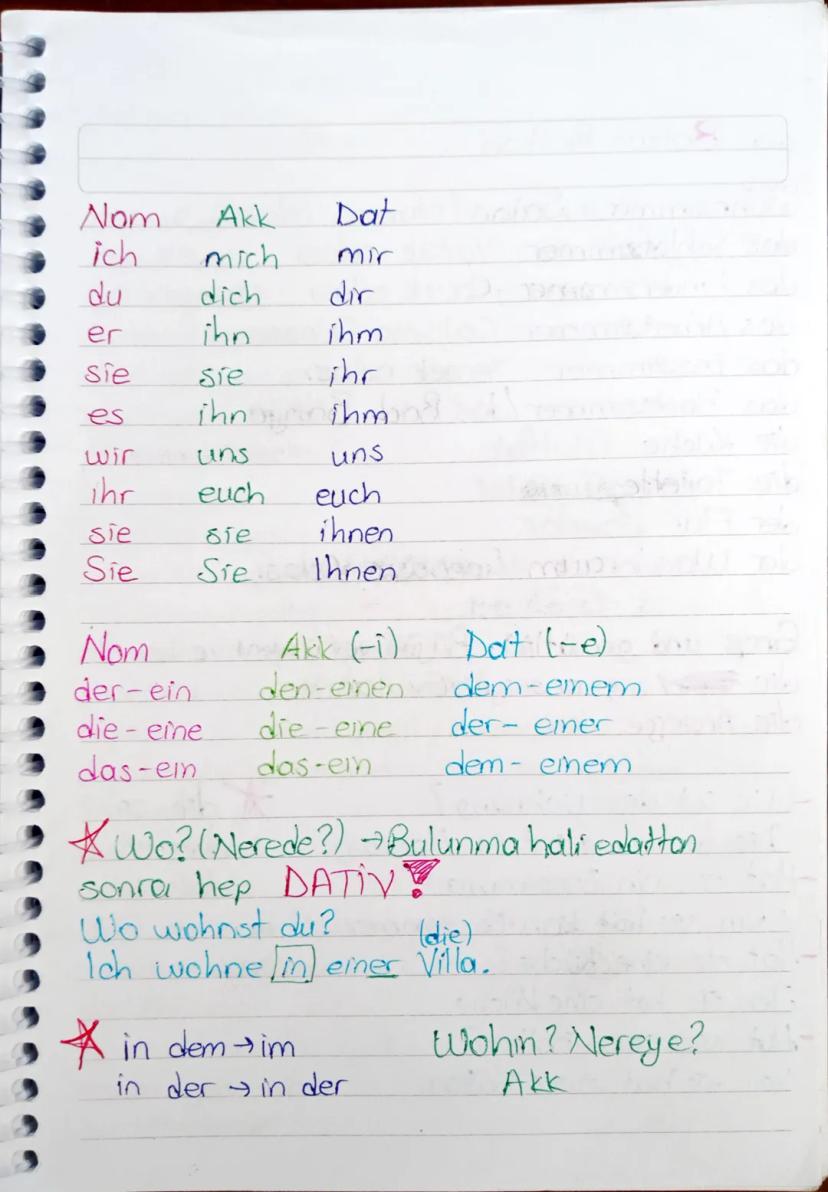 Nom Akk Dat
ich mich mir
du dich dir
er ihn ihm
sie sie ihr
es ihn ihm
wir uns uns
ihr euch euch
sie sie ihnen
Sie Sie Ihnen
Nom Akk (-i) Dat (-e)
der-ein den-einen dem-einem
die-eine die-eine der-einer
das-ein das-ein dem-einem
Wo? (Nerede?) → Bulunma hali edattan
sonra hep DATİV!
Wo wohnst du?
(die)
Ich wohne in einer Villa.
in dem → im Wohin? Nereye?
in der → in der Akk